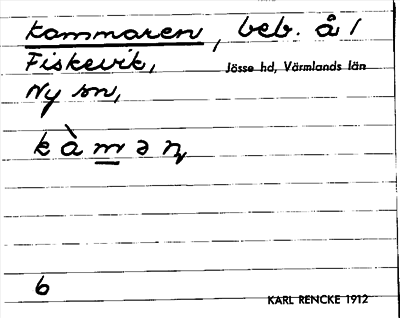 Kammaren, beb. å 1
Fiskevik, Jösse hd, Värmlands län
Ny sn,
k à m ə n̥
6
KARL RENCKE 1912